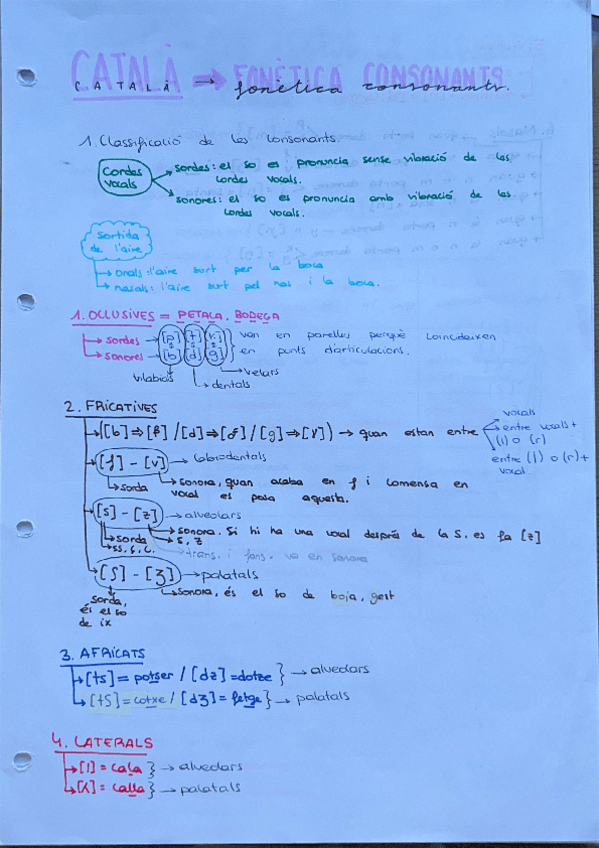 CATALÀ → FONÈTICA CONSONANTS.
1. Classificació de les consonants.
Cordes vocals
sordes: el so es pronuncia sense vibració de les
cordes vocals.
sonores: el so es pronuncia amb vibració de les
cordes vocals.
Sortida
de l'aire
→ orals: l'aire surt per la boca
→ nasals: l'aire surt pel nas i la boca.
1. OCLUSIVES = PETACA, BODEGA
→ sordes → [p] [t] [k] } van en parelles perquè coincideixen
→ sonores → [b] [d] [g] } en punts d'articulacions.
vilabials
dentals
velars
2. FRICATIVES
([b] ⇒ [β] / [d] ⇒ [ð] / [g] ⇒ [ɣ]) → quan estan entre
vocals
entre vocals +
(l) o (r)
entre (l) o (r) +
vocal
[f] - [v] → labiodentals
→ sorda
→ sonora, quan acaba en f i comensa en
vocal es posa aquesta.
[s] - [z] → alveolars
→ sorda
→ sonora. Si hi ha una vocal després de la S, es fa [z]
→ ss, ç, c.
→ s, z
→ trans. i fons. va en sonora
[ʃ] - [ʒ] → palatals
→ sorda,
és el so
de ix
→ sonora, és el so de boja, gest
3. AFRICATS
→ [ts] = potser / [dz] = dotze } → alveolars
→ [tʃ] = cotxe / [dʒ] = fetge } → palatals
4. LATERALS
→ [l] = cala } → alveolars
→ [ʎ] = calla } → palatals